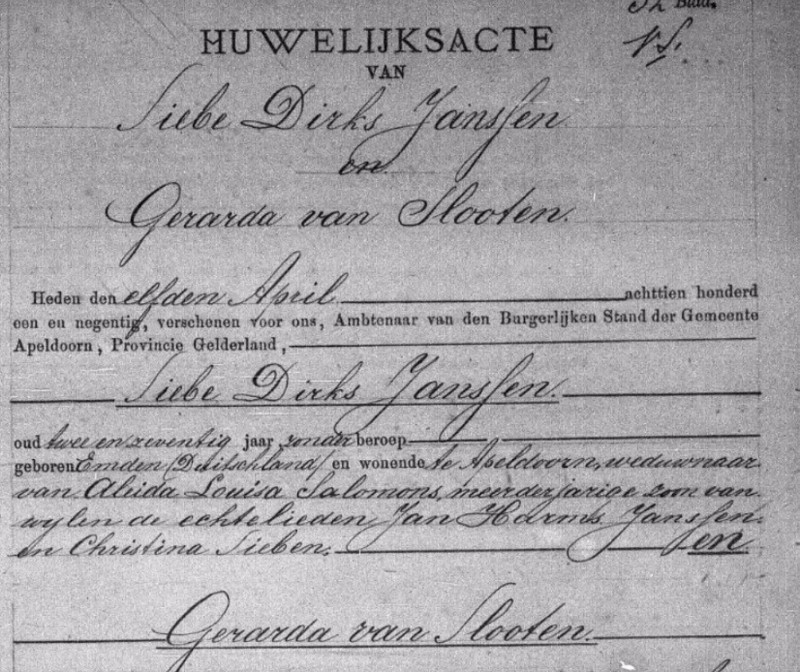 Blad.
HUWELIJKSACTE
VAN
Siebe Dirks Janssen
en
Gerarda van Slooten.
Heden den elfden April achttien honderd
een en negentig, verschenen voor ons, Ambtenaar van den Burgerlijken Stand der Gemeente
Apeldoorn, Provincie Gelderland,
Siebe Dirks Janssen.
oud twee en zeventig jaar, zonder beroep
geboren Emden (Duitschland) en wonende te Apeldoorn, weduwnaar
van Aleida Louisa Salomons, meerderjarige zoon van
wylen de echtelieden Jan Harms Janssen
en Christina Sieben.
en
Gerarda van Slooten.